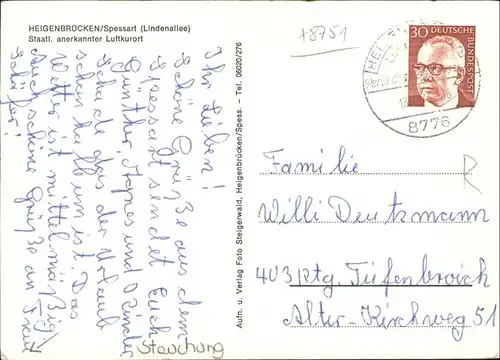 HEIGENBRÜCKEN/Spessart (Lindenallee)
Staatl. anerkannter Luftkurort
+8751
30 DEUTSCHE
BUNDESPOST
8776
Ihr Lieben!
Schöne Grüße aus dem
Spessart sendet Euch
Günther, Agnes und Kinder
Schade das der Urlaub
schon halb um ist. Das
Wetter ist mittelmäßig.
Auch schöne Grüße an Frau
Stauchung
Aufn. u. Verlag Foto Steigerwald, Heigenbrücken/Spess. – Tel. 06020/276
Familie
Willi Deutzmann
403 Rtg. Tiefenbroich
Alter-Kirchweg 51
R